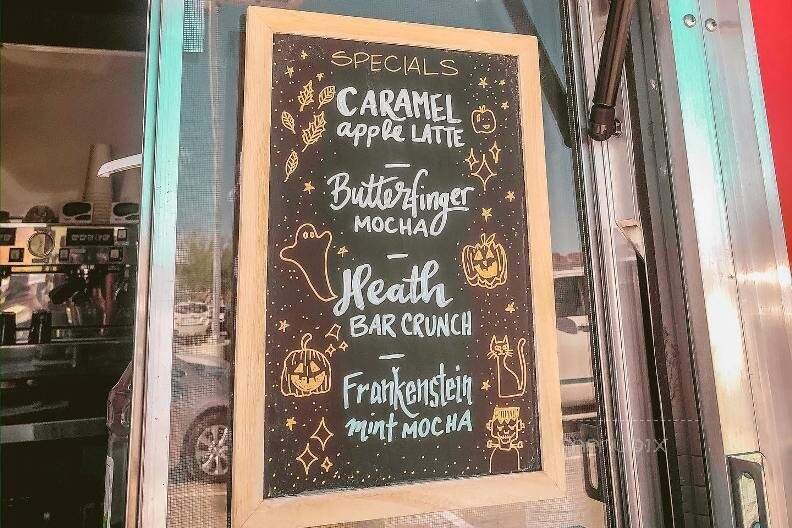 SPECIALS
CARAMEL
apple LATTE
Butterfinger
MOCHA
Heath
BAR CRUNCH
Frankenstein
mint MOCHA